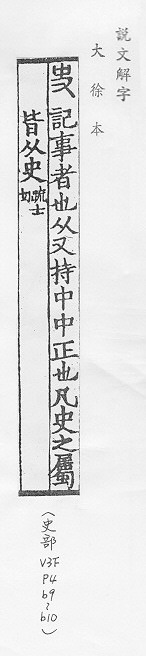 説文解字
大徐本
㕜記事者也从又持中中正也凡史之屬
皆从史疏士切
(史部
V3F
P4
b9
~
b10)